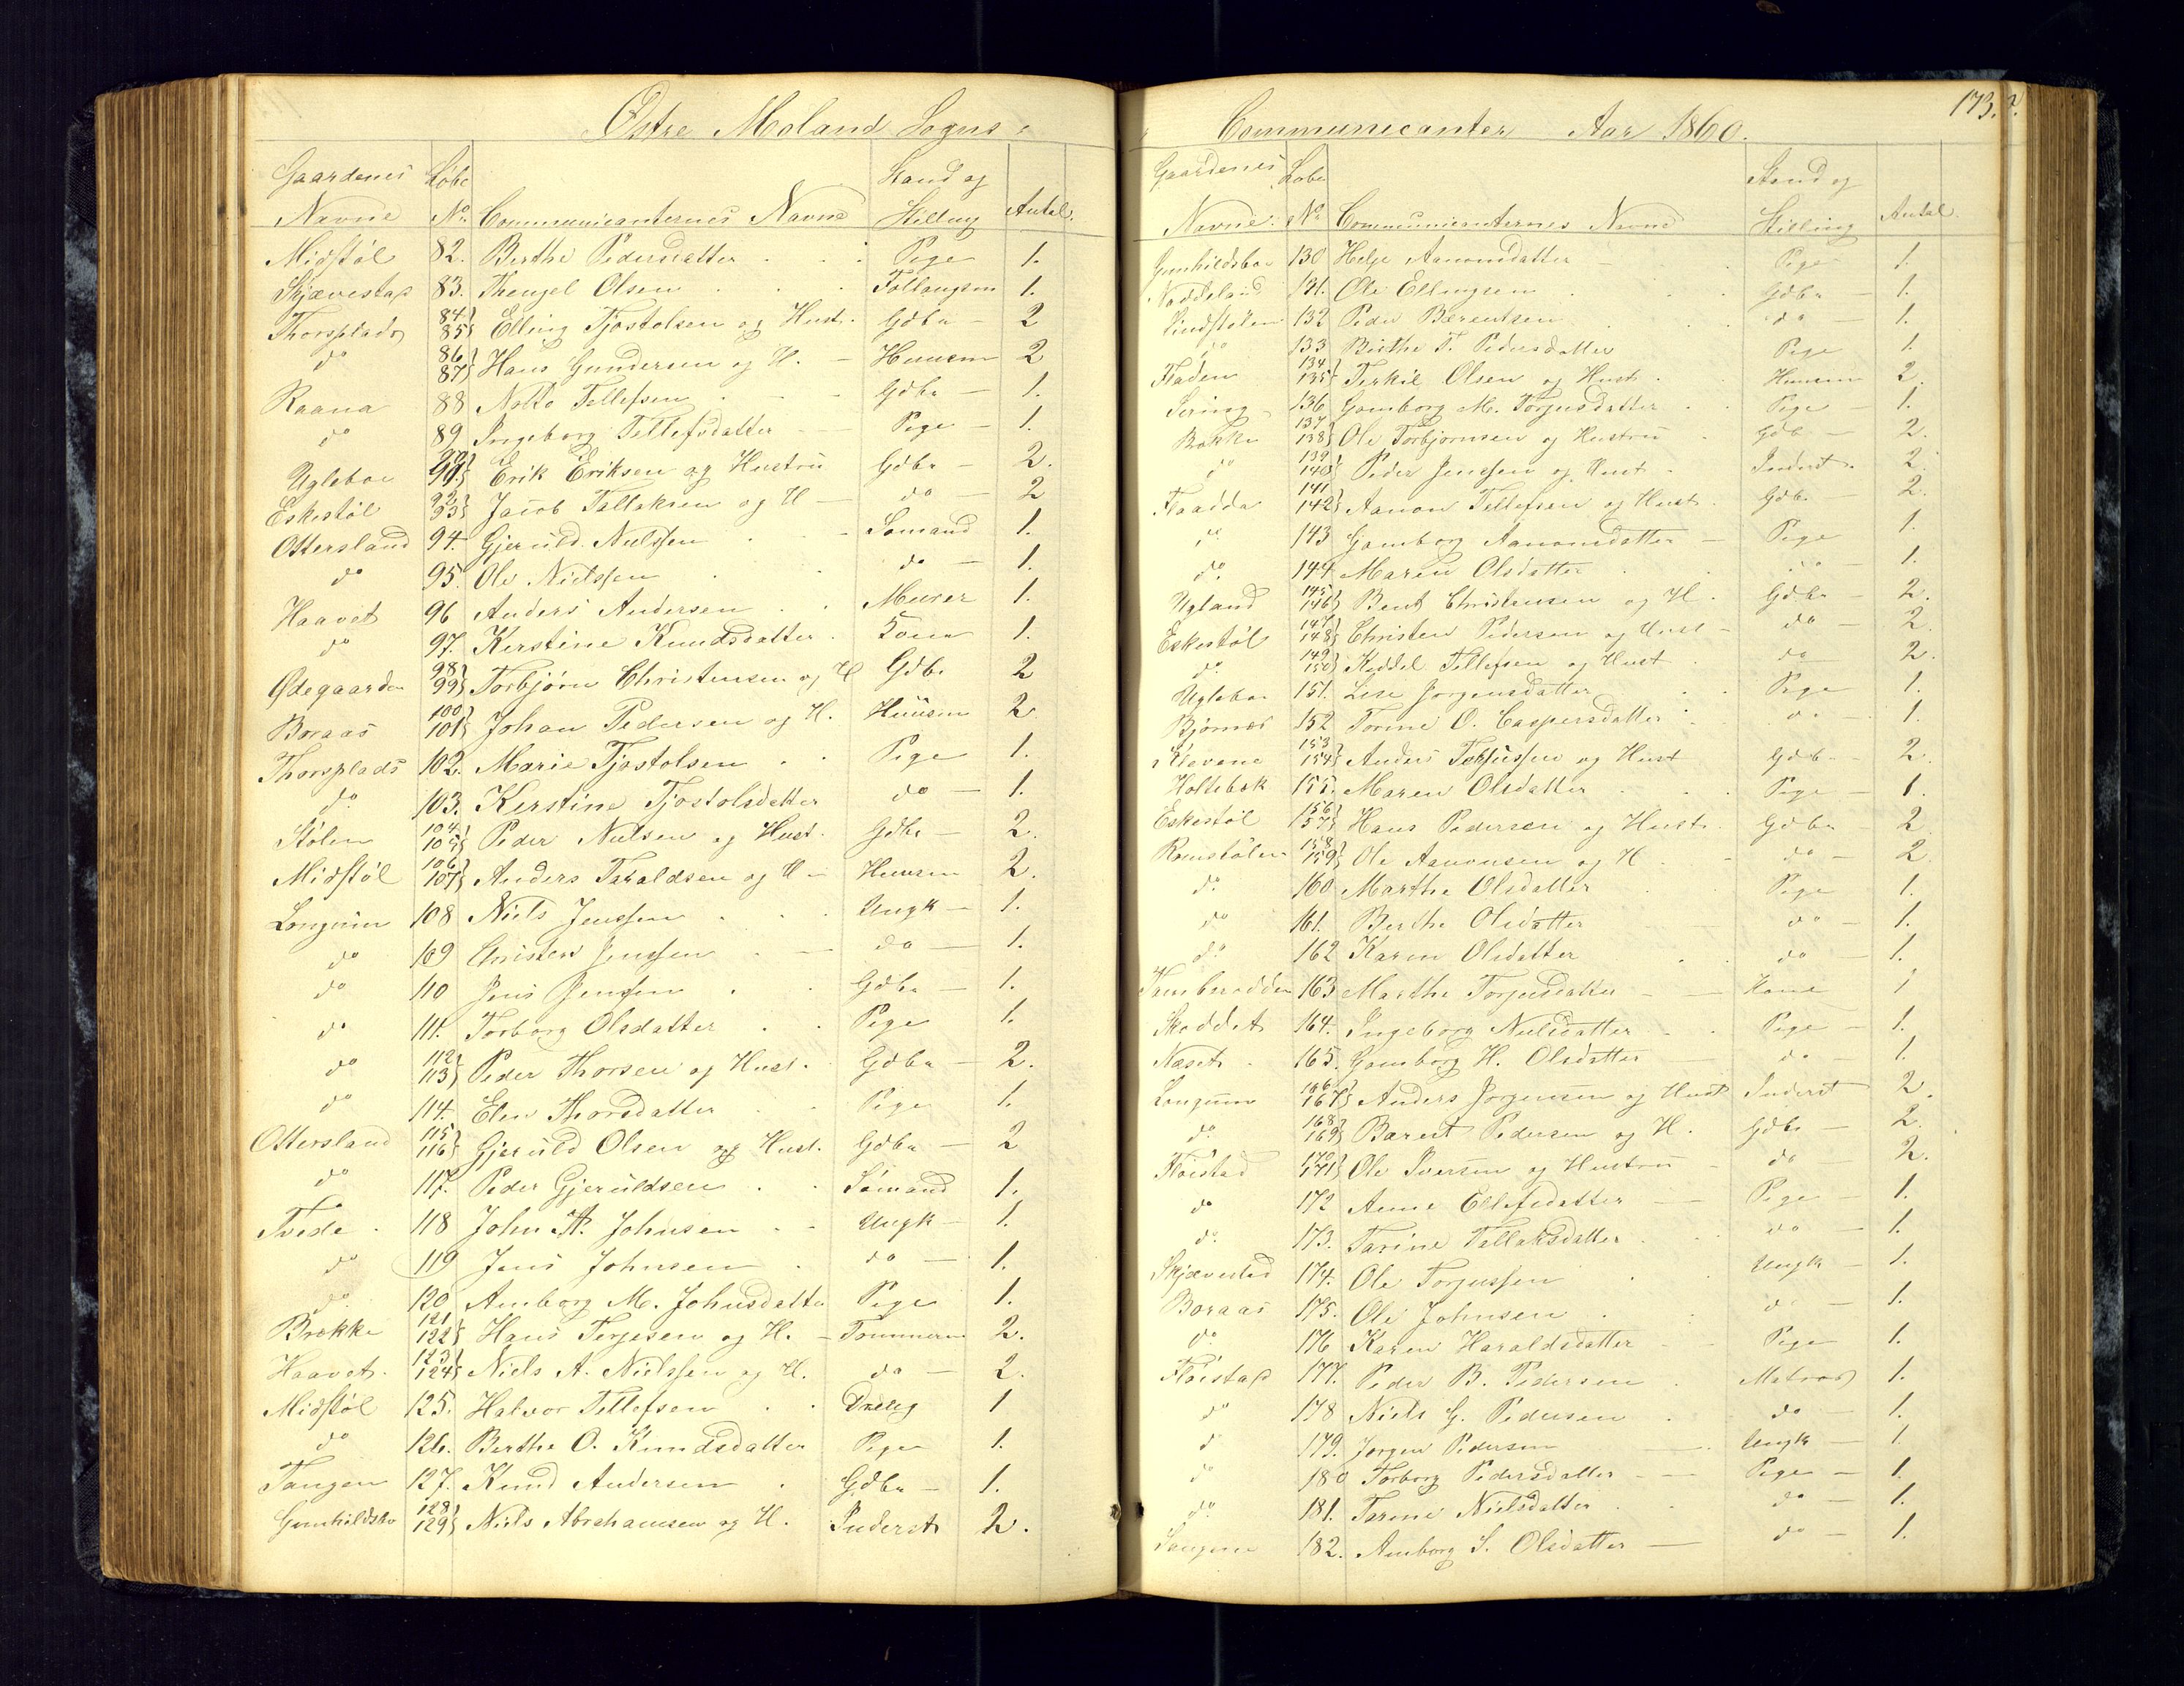 Østre Moland Sogns
Gaardenes Løbe Stand og
Navne No. Communicanternes Navne Stilling Antal.
Midstøl 82. Berthe Pedersdatter Pige 1.
Skjævestad 83. Thengel Olsen 1.
Thorsplads 84. 85 Elling Tjostolsen og Hust. Gdbr 2
do 86. 87 Hans Gundersen og H. Huusm 2
Raana 88 Notto Tellefsen Gdbr 1.
do 89. Ingeborg Tellefsdatter Pige 1.
Ugleboe 90. 91. Erik Eriksen og Hustru Gdbr 2.
Eskestøl 92. 93 Jacob Tallaksen og H do 2
Ottersland 94. Gjeruld Nielssen Sømand 1.
do 95. Ole Nielssen do 1.
Haavet 96 Anders Andersen Murer 1.
do 97. Kerstine Knudsdatter Kone 1.
Ødegaarden 98 99 Torbjørn Christensen og H Gdbr 2
Boraas 100 101 Johan Pedersen og H. Huusm 2
Thorsplads 102. Marie Tjostolsen Pige 1.
do 103. Kerstine Tjostolsdatter do 1.
Stølen 104. 105 Peder Nielsen og Hust. Gdbr 2.
Midstøl 106 107 Anders Taraldsen og H Huusm 2.
Longum 108 Niels Jenssen Ungk 1.
do 109 Christen Jenssen do 1.
do 110 Jens Jenssen Gdbr 1.
do 111. Torborg Olsdatter Pige 1.
do 112 113 Peder Thorsen og Hust. Gdbr 2.
do 114. Elen Thorsdatter Pige 1.
Ottersland 115 116 Gjeruld Olsen og Hust. Gdbr 2
do 117. Peder Gjeruldsen Sømand 1.
Tvede 118 John Johnsen Ungk 1.
do 119 Jens Johnsen do 1.
do 120 Amborg M. Johnsdatter Pige 1.
Brekke 121 122 Hans Terjesen og H. Tømmerm 2.
Haavet 123 124 Niels A. Nielssen og H. do 2.
Midstøl 125. Halvor Tellefsen 1
do 126. Berthe O. Knudsdatter Pige 1.
Tangen 127. Knud Andersen Gdbr 1.
Gunhildsbo 128 129 Niels Abrahamsen og H. Inderst 2.
Communicanter Aar 1860.
173.
Gaardenes Løbe Stand og
Navne No Communicanternes Navne Stilling Antal
Gunhildsboe 130 Helje Aanonsdatter Pige 1.
Noddeland 131. Ole Ellingsen Gdbr 1.
Lindstølen 132 Peder Bærentsen do 1.
do 133 Birthe T. Pedersdatter Pige 1.
Fladen 134 135 Terkil Olsen og Hust. Huusm 2.
136 Gomborg M. Torjusdatter Pige 1.
Brekke 137 138 Ole Torbjørnsen og Hustru Gdb 2.
do 139 140 Peder Jenssen og Hust Inderst 2.
Flaadda 141 142 Aanon Tellefsen og Hust. Gdb. 2.
do 143 Gomborg Aanonsdatter Pige 1.
do 144 Maren Olsdatter do 1.
Ugland 145 146 Bent Christensen og H. Gdbr 2.
Eskestøl 147 148 Christen Pedersen og Hust do 2.
do 149 150 Keddel Tellefsen og Hust do 2.
Uglebo 151. Lise Jørgensdatter Pige 1.
Bjørnes 152 Torine O. Caspersdatter do 1.
Klevene 153 154 Anders og Hust Gdb 2.
Holtebæk 155. Maren Olsdatter Pige 1.
Eskestøl 156 157 Hans Pedersen og Hust Gdbr 2
Romstølen 158 159 Ole Aanonsen og H do 2
do 160 Marthe Olsdatter Pige 1.
do 161. Berthe Olsdatter do 1.
do 162 Karen Olsdatter do 1.
163 Marthe Torjusdatter Kone 1
Skoddet 164. Ingeborg Nielsdatter Pige 1.
Næset 165. Gomborg H. Olsdatter do 1.
Longum 166 167 Anders Jørgensen og Hust Inderst 2.
do 168 169 Barent Pedersen og H. Gdbr 2.
Fløistad 170 171 Ole Iversen og Hustru do 2.
do 172 Anne Ellefsdatter Pige 1.
do 173. Tarine Tallaksdatter do 1.
Skjævestad 174. Ole Torjussen Ungk 1.
Boraas 175. Ole Johnsen do 1.
do 176 Karen Haraldsdatter Pige 1.
Fløistad 177. Peder B. Pedersen Matros 1.
do 178 Niels G. Pedersen do 1.
do 179. Jørgen Pedersen Ungk 1.
do 180 Torborg Pedersdatter Pige 1.
do 181. Tarine Nielsdatter do 1.
Longum 182. Amborg S. Olsdatter do 1.